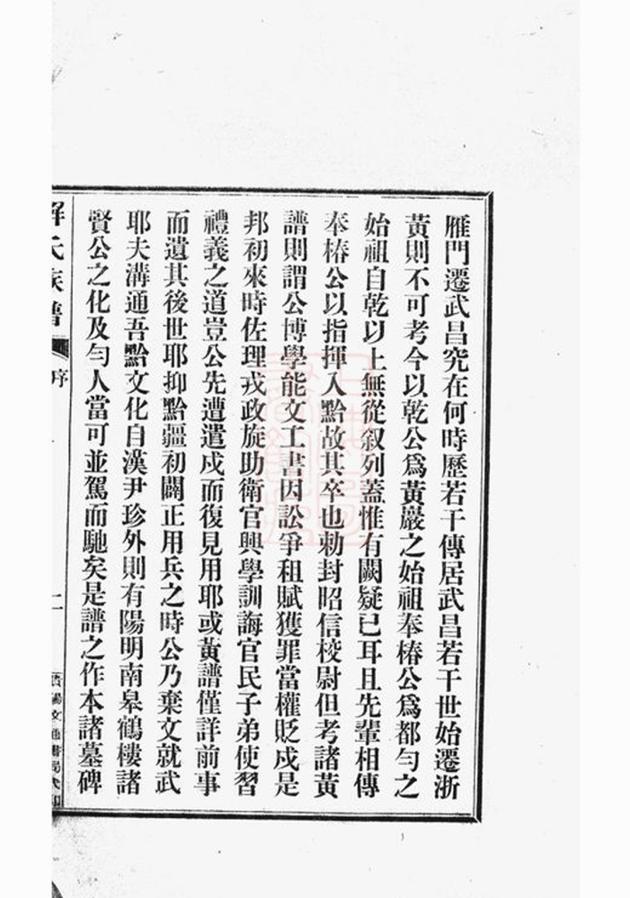 雁門遷武昌究在何時歷若干傳居武昌若干世始遷浙
黃則不可考今以乾公爲黃巖之始祖奉椿公爲都勻之
始祖自乾以上無從叙列蓋惟有闕疑已耳且先輩相傳
奉椿公以指揮入黔故其卒也勅封昭信校尉但考諸黃
譜則謂公博學能文工書因訟爭租賦獲罪當權貶戍是
邦初來時佐理戎政旋助衛官興學訓誨官民子弟使習
禮義之道豈公先遭遣戍而復見用耶或黃譜僅詳前事
而遺其後世耶抑黔疆初闢正用兵之時公乃棄文就武
耶夫溝通吾黔文化自漢尹珍外則有陽明南皋鶴樓諸
賢公之化及勻人當可並駕而馳矣是譜之作本諸墓碑
氏族譜
序
二
文通書局代印